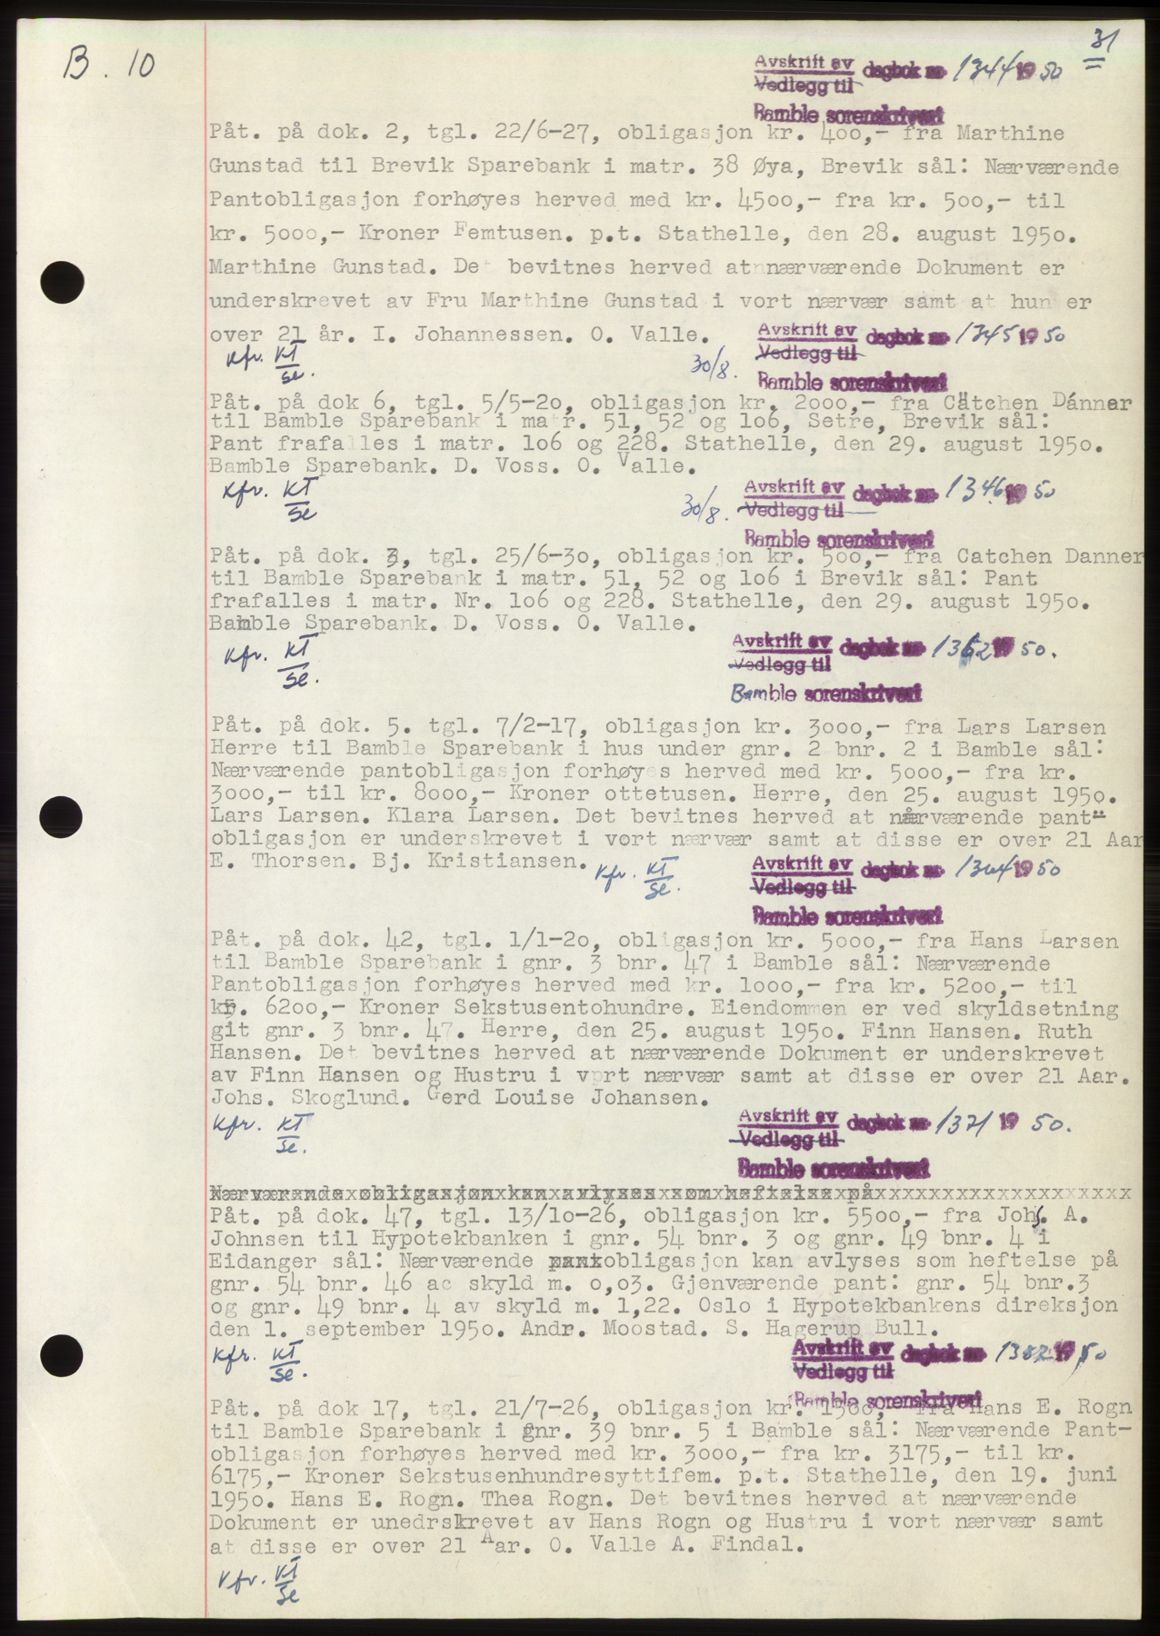 31
B. 10
Avskrift av dagbok nr 1344 19 50
Vedlegg til
Bamble sorenskriveri
Påt. på dok. 2, tgl. 22/6-27, obligasjon kr. 400,- fra Marthine
Gunstad til Brevik Sparebank i matr. 38 Øya, Brevik sål: Nærværende
Pantobligasjon forhøyes herved med kr. 4500,- fra kr. 500,- til
kr. 5000,- Kroner Femtusen. p.t. Stathelle, den 28. august 1950.
Marthine Gunstad. Det bevitnes herved at nærværende Dokument er
underskrevet av Fru Marthine Gunstad i vort nærvær samt at hun er
over 21 år. I. Johannessen. O. Valle.
Avskrift av dagbok nr 1345 19 50
Vedlegg til
Bamble sorenskriveri
Kfr. KT
Se.
30/8.
Påt. på dok 6, tgl. 5/5-20, obligasjon kr. 2000,- fra Cätchen Dánner
til Bamble Sparebank i matr. 51, 52 og 106, Setre, Brevik sål:
Pant frafalles i matr. 106 og 228. Stathelle, den 29. august 1950.
Bamble Sparebank. D. Voss. O. Valle.
Kfr. KT
Se
30/8.
Avskrift av dagbok nr 1346 19 50
Vedlegg til
Bamble sorenskriveri
Påt. på dok. 3, tgl. 25/6-30, obligasjon kr. 500,- fra Catchen Danner
til Bamble Sparebank i matr. 51, 52 og 106 i Brevik sål: Pant
frafalles i matr. Nr. 106 og 228. Stathelle, den 29. august 1950.
Bamble Sparebank. D. Voss. O. Valle.
Kfr. KT
Se.
Avskrift av dagbok nr 1362 19 50.
Vedlegg til
Bamble sorenskriveri
Påt. på dok. 5. tgl. 7/2-17, obligasjon kr. 3000,- fra Lars Larsen
Herre til Bamble Sparebank i hus under gnr. 2 bnr. 2 i Bamble sål:
Nærværende pantobligasjon forhøyes herved med kr. 5000,- fra kr.
3000,- til kr. 8000,- Kroner ottetusen. Herre, den 25. august 1950.
Lars Larsen. Klara Larsen. Det bevitnes herved at nærværende pant-
obligasjon er underskrevet i vort nærvær samt at disse er over 21 Aar
E. Thorsen. Bj. Kristiansen.
Kfr. KT
Se.
Avskrift av dagbok nr 1364 19 50
Vedlegg til
Bamble sorenskriveri
Påt. på dok. 42, tgl. 1/1-20, obligasjon kr. 5000,- fra Hans Larsen
til Bamble Sparebank i gnr. 3 bnr. 47 i Bamble sål: Nærværende
Pantobligasjon forhøyes herved med kr. 1000,- fra kr. 5200,- til
kr. 6200,- Kroner Sekstusentohundre. Eiendommen er ved skyldsetning
git gnr. 3 bnr. 47. Herre, den 25. august 1950. Finn Hansen. Ruth
Hansen. Det bevitnes herved at nærværende Dokument er underskrevet
av Finn Hansen og Hustru i vort nærvær samt at disse er over 21 Aar.
Johs. Skoglund. Gerd Louise Johansen.
Kfr. KT
Se.
Avskrift av dagbok nr 1371 19 50.
Vedlegg til
Bamble sorenskriveri
Nærværende obligasjon kan avlyses som heftelse på
Påt. på dok. 47, tgl. 13/10-26, obligasjon kr. 5500,- fra Johs. A.
Johnsen til Hypotekbanken i gnr. 54 bnr. 3 og gnr. 49 bnr. 4 i
Eidanger sål: Nærværende pantobligasjon kan avlyses som heftelse på
gnr. 54 bnr. 46 ac skyld m. 0,03. Gjenværende pant: gnr. 54 bnr.3
og gnr. 49 bnr. 4 av skyld m. 1,22. Oslo i Hypotekbankens direksjon
den 1. september 1950. Andr. Moostad. S. Hagerup Bull.
Kfr. KT
Se.
Avskrift av dagbok nr 1382 19 50
Vedlegg til
Bamble sorenskriveri
Påt. på dok 17, tgl. 21/7-26, obligasjon kr. 1500,- fra Hans E. Rogn
til Bamble Sparebank i gnr. 39 bnr. 5 i Bamble sål: Nærværende Pant-
obligasjon forhøyes herved med kr. 3000,- fra kr. 3175,- til kr.
6175,- Kroner Sekstusenhundresyttifem. p.t. Stathelle, den 19. juni
1950. Hans E. Rogn. Thea Rogn. Det bevitnes herved at nærværende
Dokument er unedrskrevet av Hans Rogn og Hustru i vort nærvær samt
at disse er over 21 Aar. O. Valle A. Findal.
Kfr. KT
Se